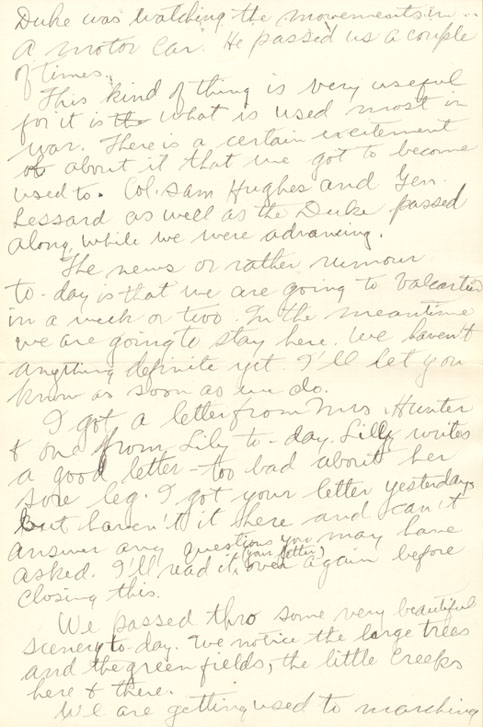 Duke was watching the movements in
a motor car. He passed us a couple
of times.
This kind of thing is very useful
for it is the what is used most in
war. There is a certain excitement
ab about it that we got to become
used to. Col. Sam Hughes and Gen.
Lessard as well as the Duke passed
along while we were advancing.
The news or rather rumour
to-day is that we are going to Valcartier
in a week or two. In the meantime
we are going to stay here. We haven't
anything definite yet. I'll let you
know as soon as we do.
I got a letter from Mrs. Hunter
& one from Lily to-day. Lilly writes
a good letter - too bad about her
sore leg. I got your letter yesterday
but haven't it here and can't
answer any questions you may have
asked. I'll read it (your letter) over again before
closing this.
We passed thro some very beautiful
scenery to-day. We notice the large trees
and the green fields, the little creeks
here & there.
We are getting used to marching